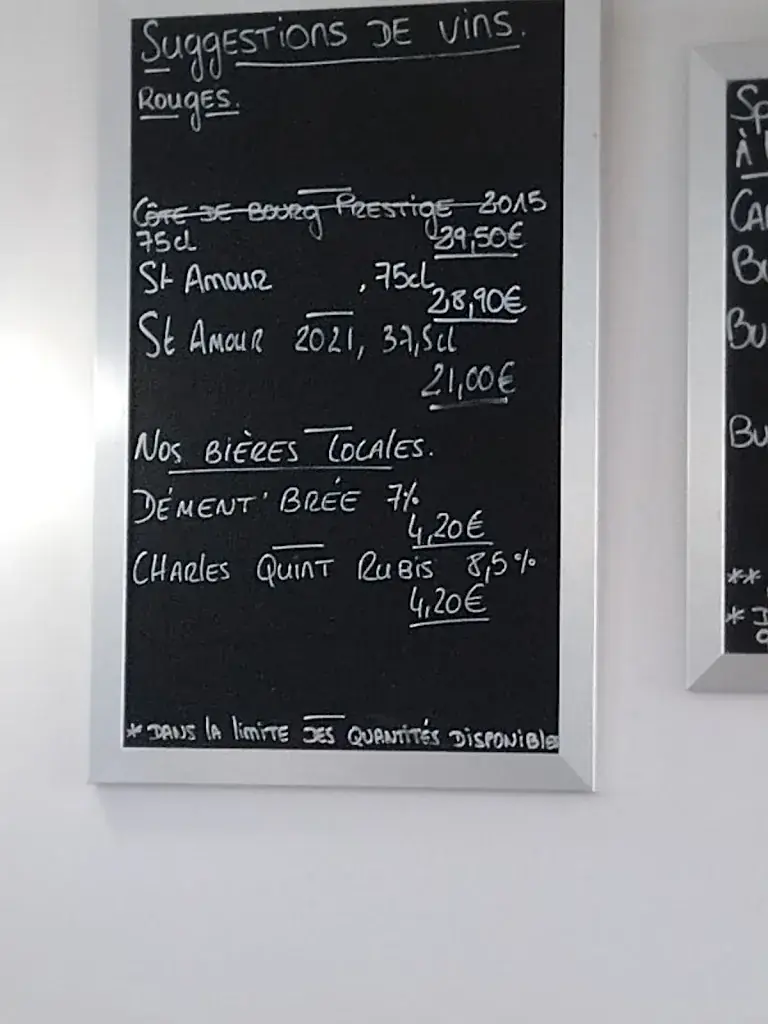 Suggestions de vins.
Rouges.
Côte de Bourg Prestige 2015
75cl 29,50€
St Amour , 75cl
28,90€
St Amour 2021, 37,5cl
21,00€
Nos bières locales.
Dément'Brée 7%
4,20€
Charles Quint Rubis 8,5%
4,20€
* Dans la limite des quantités disponibles
Sp
À l
Ca
Bu
Bu
Bu
**
*